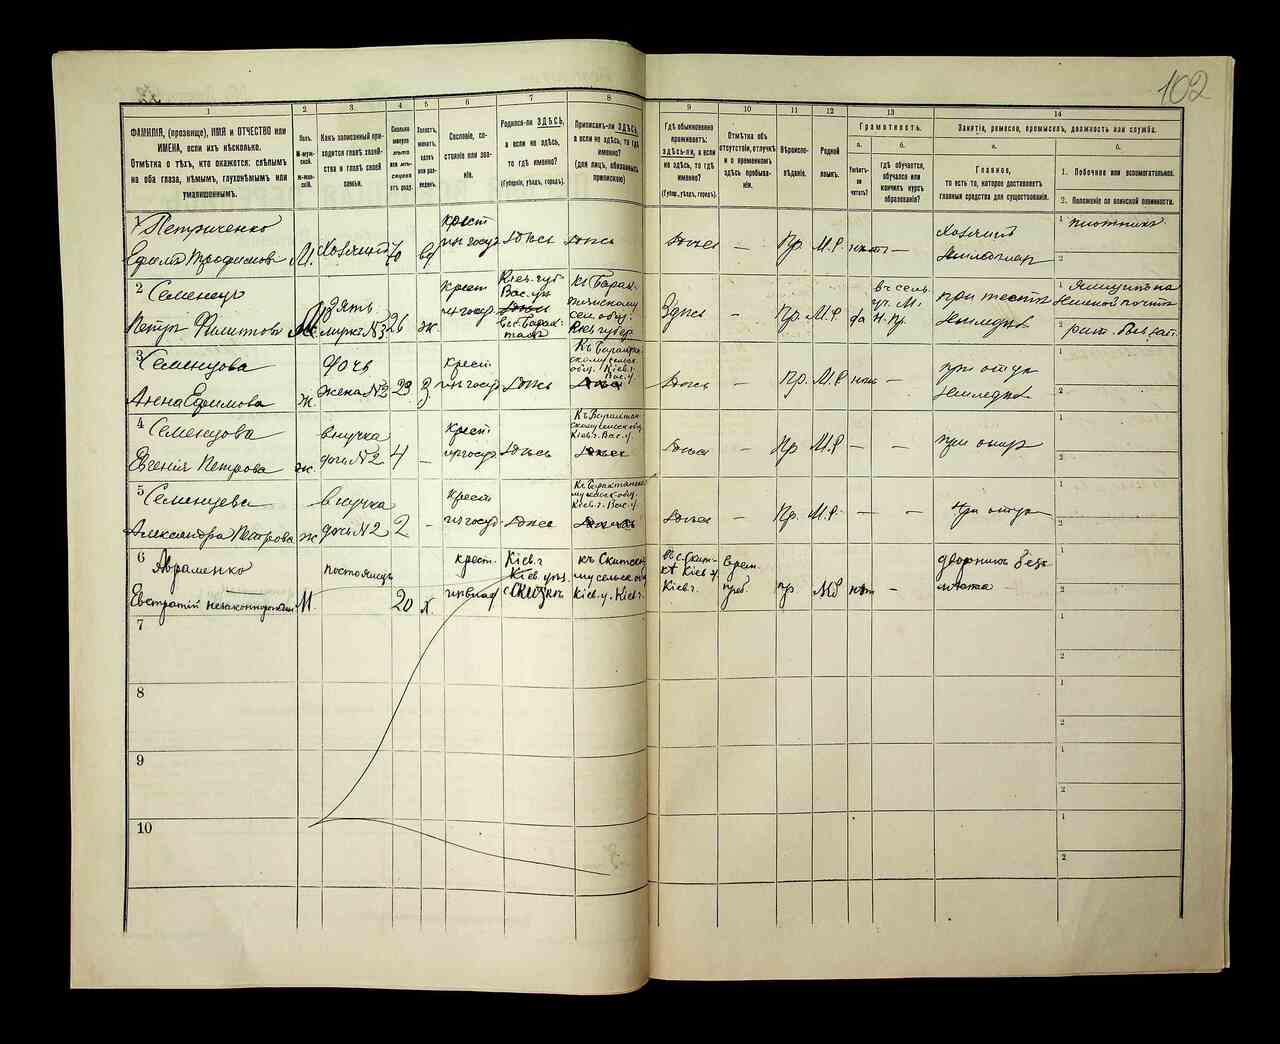 102
1
2
3
4
5
6
7
8
9
10
11
12
13
14
ФАМИЛІЯ, (прозвище), ИМЯ и ОТЧЕСТВО или
ИМЕНА, если ихъ нѣсколько.
Отмѣтка о тѣхъ, кто окажется: слѣпымъ
на оба глаза, нѣмымъ, глухонѣмымъ или
умалишоннымъ.
Полъ.
М-муж-
ской.
Ж-жен-
скій.
Какъ записанный при-
ходится главѣ хозяй-
ства и главѣ своей
семьи.
Сколько
минуло
лѣтъ
или мѣ-
сяцевъ
отъ роду.
Холостъ,
женатъ,
вдовъ
или раз-
веденъ.
Сословіе, со-
стояніе или зва-
ніе.
Родился-ли ЗДѢСЬ,
а если не здѣсь,
то гдѣ именно?
(Губернія, уѣздъ, городъ).
Приписанъ-ли ЗДѢСЬ,
а если не здѣсь, то гдѣ
именно?
(для лицъ, обязанныхъ
припискою)
Гдѣ обыкновенно
проживаетъ:
здѣсь-ли, а если
не здѣсь, то гдѣ
именно?
(Губер.,уѣздъ, городъ).
Отмѣтка объ
отсутствіи, отлучкѣ
и о временномъ
здѣсь пребыва-
ніи.
Вѣроиспо-
вѣданіе.
Родной
языкъ.
Грамотность.
а.
Умѣетъ-
ли
читать?
б.
гдѣ обучается,
обучался или
кончилъ курсъ
образованія?
Занятіе, ремесло, промыселъ, должность или служба.
а.
Главное,
то есть то, которое доставляетъ
главныя средства для существованія.
б.
1. Побочное или вспомогательное.
2. Положеніе по воинской повинности.
1
Петриченко
Ефимъ Трофимовъ
М.
Хозяинъ
70
вд
крест
изъ госуд
Здѣсь
Здѣсь
Здѣсь
—
Пр
М.Р
нѣтъ
—
Хозяинъ
1
плотникъ
2
2
Семенецъ
Петръ Филиповъ
М
Зять
мужъ №3
26
ж.
Крест
изъ госуд.
Кіев. губ
Вас. уѣ
Здѣсь
Здѣсь
—
Пр.
М.Р
да
въ сель.
уч. М.
Н. Пр.
при тестѣ
1
Ямщикъ на
2
3
Семенцова
Анна Ефимова
ж.
Дочь
жена №2
23
З.
Крест
изъ госуд
Здѣсь
Здѣсь
Здѣсь
—
Пр.
М.Р
нѣтъ
—
при отцѣ
1
2
4
Семенцова
Евгенія Петрова
ж.
внучка
дочь №2
4
—
Крест
изъ госуд
Здѣсь
Здѣсь
Здѣсь
—
Пр
М.Р
—
—
при отцѣ
1
2
5
Семенцева
Александра Петрова
ж
внучка
дочь №2
2
-
Крест
изъ госуд.
Здѣсь
Здѣсь
Здѣсь
—
Пр.
М.Р.
—
—
При отцѣ
1
2
6
Авраменко
Евстратій незаконнорожден
М.
постоялецъ
20
х.
крест.
Кіев. г
Кіев уѣз.
къ Скитск
му сельск об
Кіев. у. Кіев г.
въ с. Скит-
Кіев г.
Врем.
преб.
пр
МР
нѣт
—
дворникъ безъ
мѣста
1
2
7
1
2
8
1
2
9
1
2
10
1
2